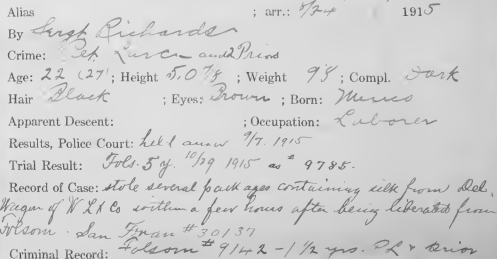 Alias ; arr.: 8/24 1915
By Sergt Richards
Crime: Pet. Larc. and 2 Priors
Age: 22 (27) ; Height 5.0 7/8 ; Weight 98 ; Compl. Dark
Hair Black ; Eyes: Brown ; Born: Mexico
Apparent Descent: ; Occupation: Laborer
Results, Police Court: held answ 9/7. 1915
Trial Result: Fols. 5 y. 10/29 1915 as # 9785.
Record of Case: stole several packages containing silk from Del.
Wagon of W L & Co within a few hours after being liberated from
Folsom. San Fran # 30137
Criminal Record: Folsom # 9142 - 1 1/2 yrs. P L & Prior